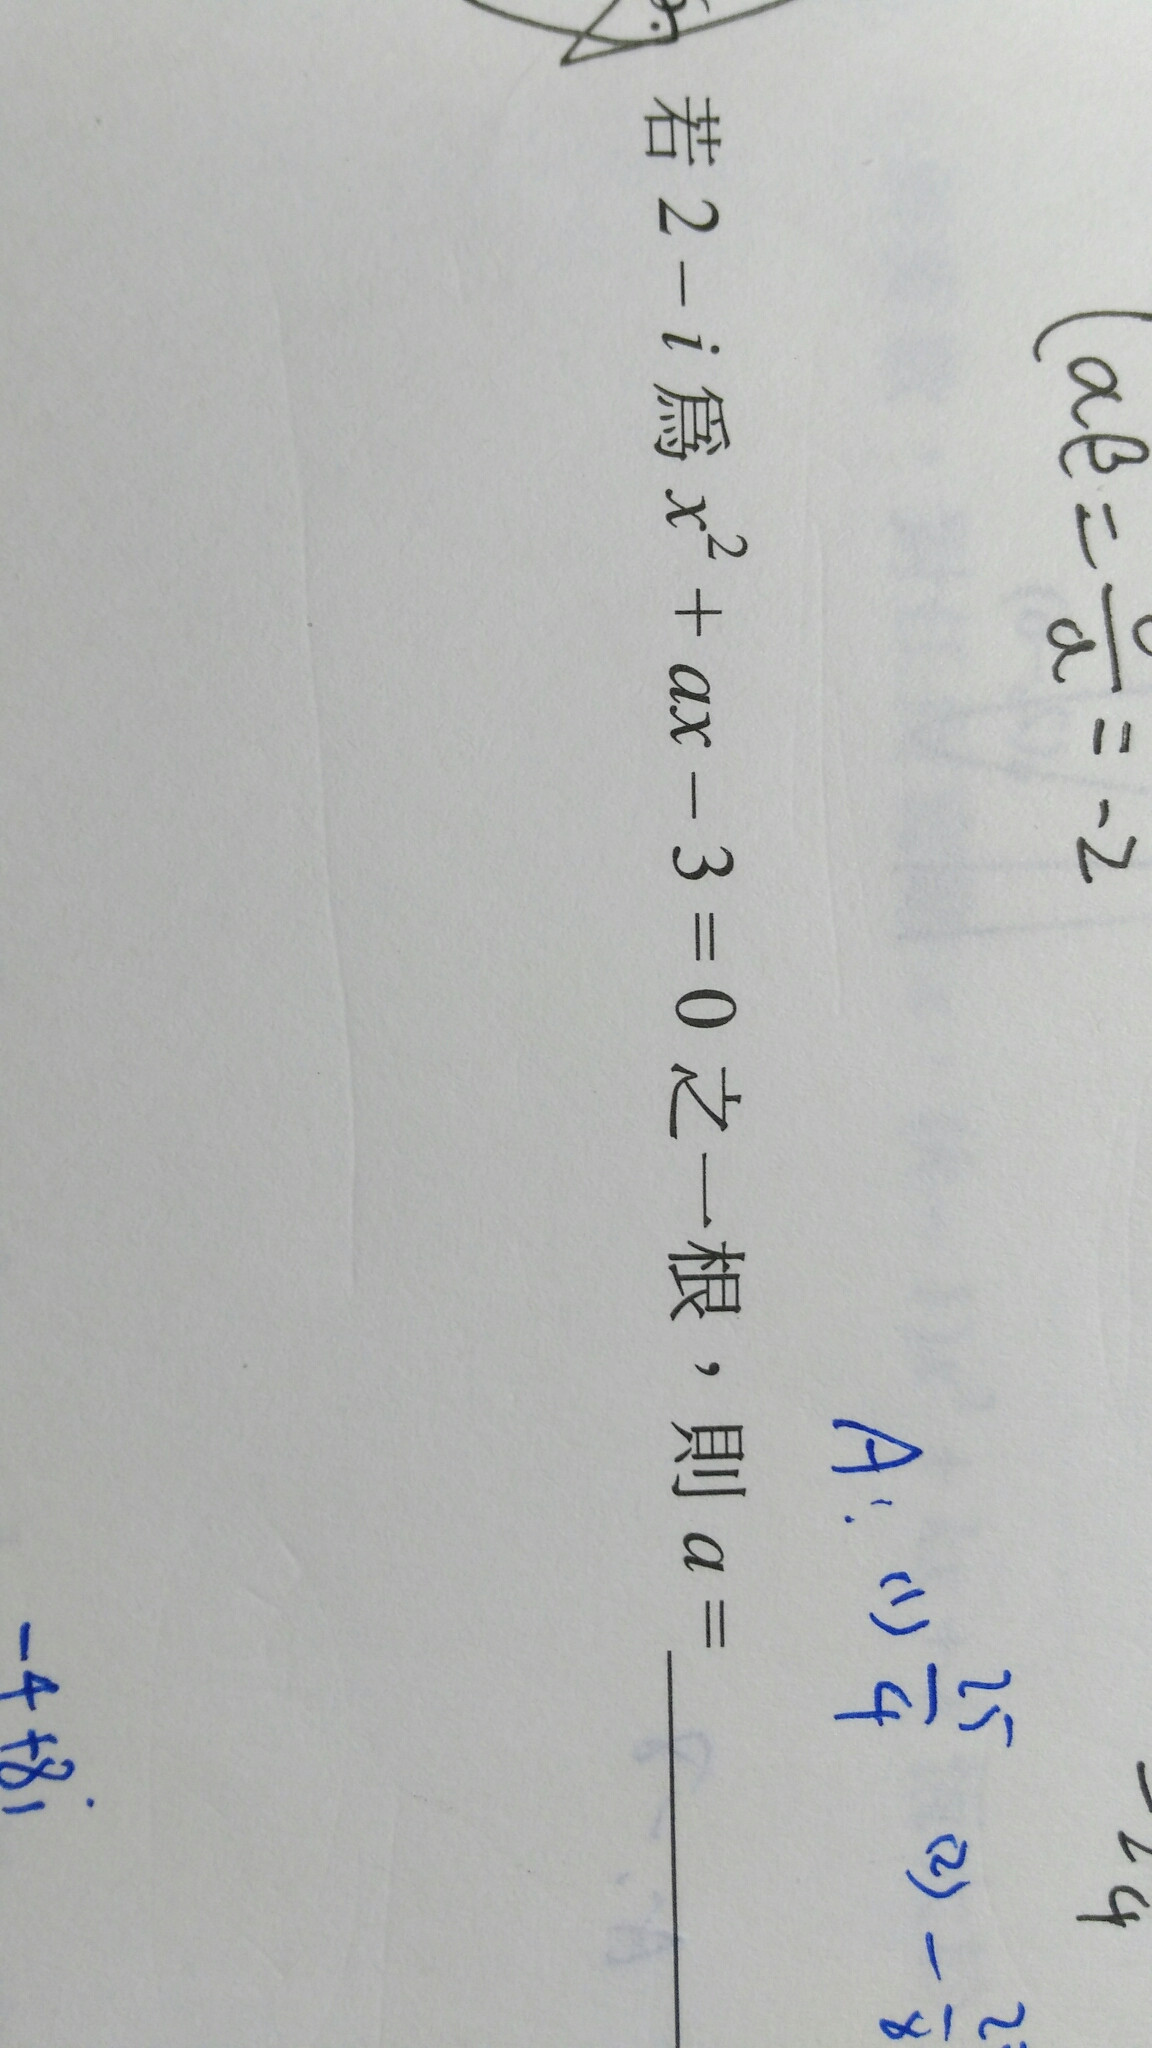 (αβ = — = -2
a
-24
A: (1) 25/4 (2) -
若 2 - i 為 x² + ax - 3 = 0 之一根，則 a = ______
-4+8i